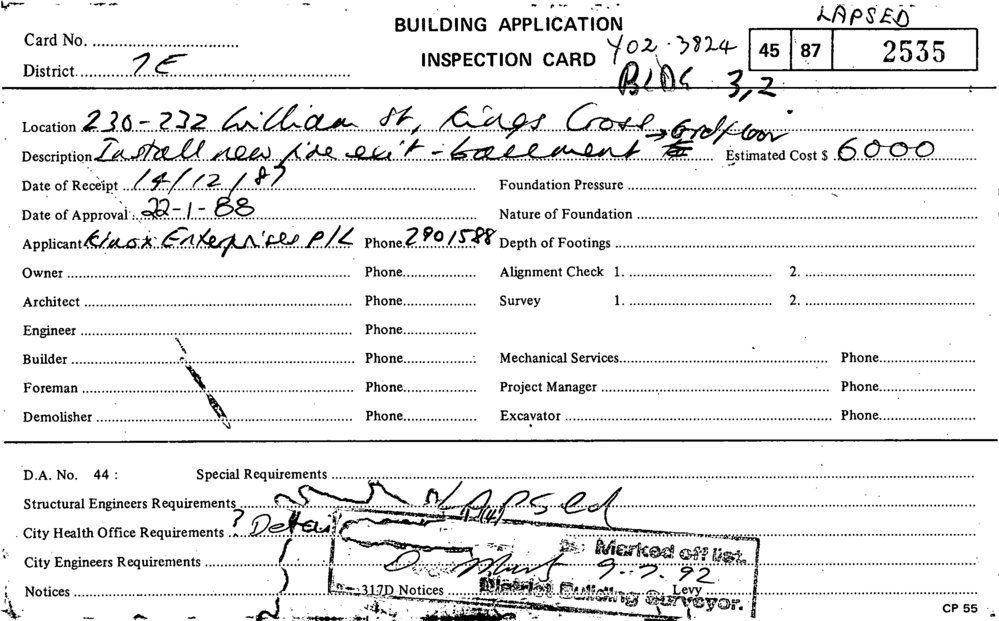 LAPSED
BUILDING APPLICATION
INSPECTION CARD
Y02-3824
BLDG 3,2
45 87 2535
Card No.
District 7E
Location 230-232 William St, Kings Cross
Description Install new fire exit - basement → Grd floor
Estimated Cost $ 6000
Date of Receipt 14/12/87 Foundation Pressure
Date of Approval 22-1-88 Nature of Foundation
Applicant Enterprises P/L Phone 2901588 Depth of Footings
Owner Phone Alignment Check 1. 2.
Architect Phone Survey 1. 2.
Engineer Phone
Builder Phone Mechanical Services Phone
Foreman Phone Project Manager Phone
Demolisher Phone Excavator Phone
D.A. No. 44 : Special Requirements
Structural Engineers Requirements LAPSed
City Health Office Requirements ? Detai
Marked off list.
City Engineers Requirements 9-7.92
Notices 317D Notices Levy
District Building Surveyor.
CP 55